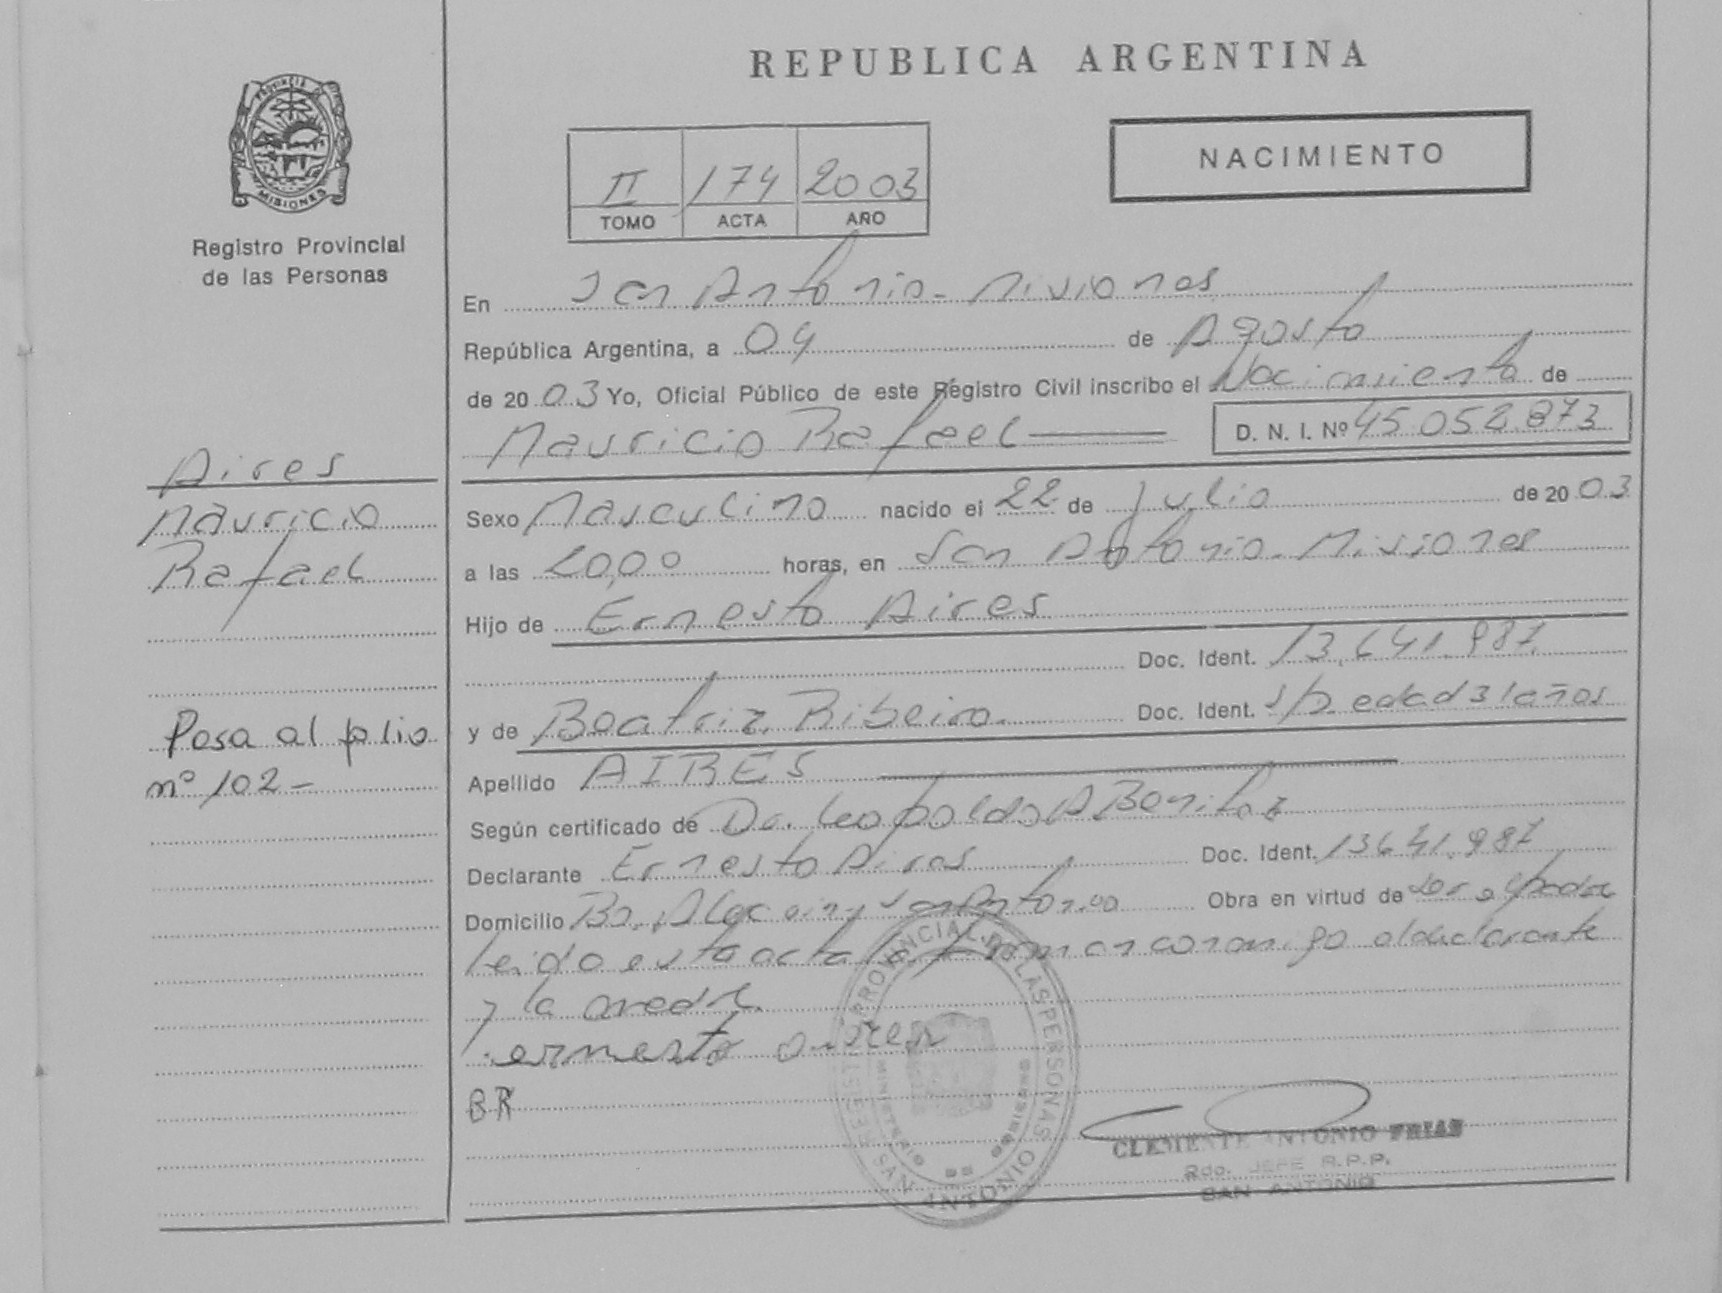 REPUBLICA ARGENTINA
PROVINCIA DE
MISIONES
Registro Provincial
de las Personas
NACIMIENTO
II 174 2003
TOMO ACTA AÑO
En San Antonio - Misiones
República Argentina, a 04 de Agosto
de 2003 Yo, Oficial Público de este Régistro Civil inscribo el Nacimiento de
Mauricio Rafael D. N. I. Nº 45.052.873
Aires
Mauricio
Rafael
Pasa al folio
nº 102 -
Sexo Masculino nacido el 22 de Julio de 2003
a las 20,00 horas, en San Antonio - Misiones
Hijo de Ernesto Aires
Doc. Ident. 13.641.987
y de Beatriz Ribeiro. Doc. Ident. S/D edad 31 años
Apellido AIRES
Según certificado de Dr. Leopoldo A Benitez
Declarante Ernesto Aires Doc. Ident. 13641.987
Domicilio Bo. San Antonio Obra en virtud de ser el padre
leida esta acta la firman conmigo el declarante
y la madre.
ernesto aires
BR
REGISTRO PROVINCIAL DE LAS PERSONAS
MINISTERIO DE GOBIERNO
SAN ANTONIO
CLEMENTE ANTONIO FRIAS
Rdo. JEFE R.P.P.
SAN ANTONIO